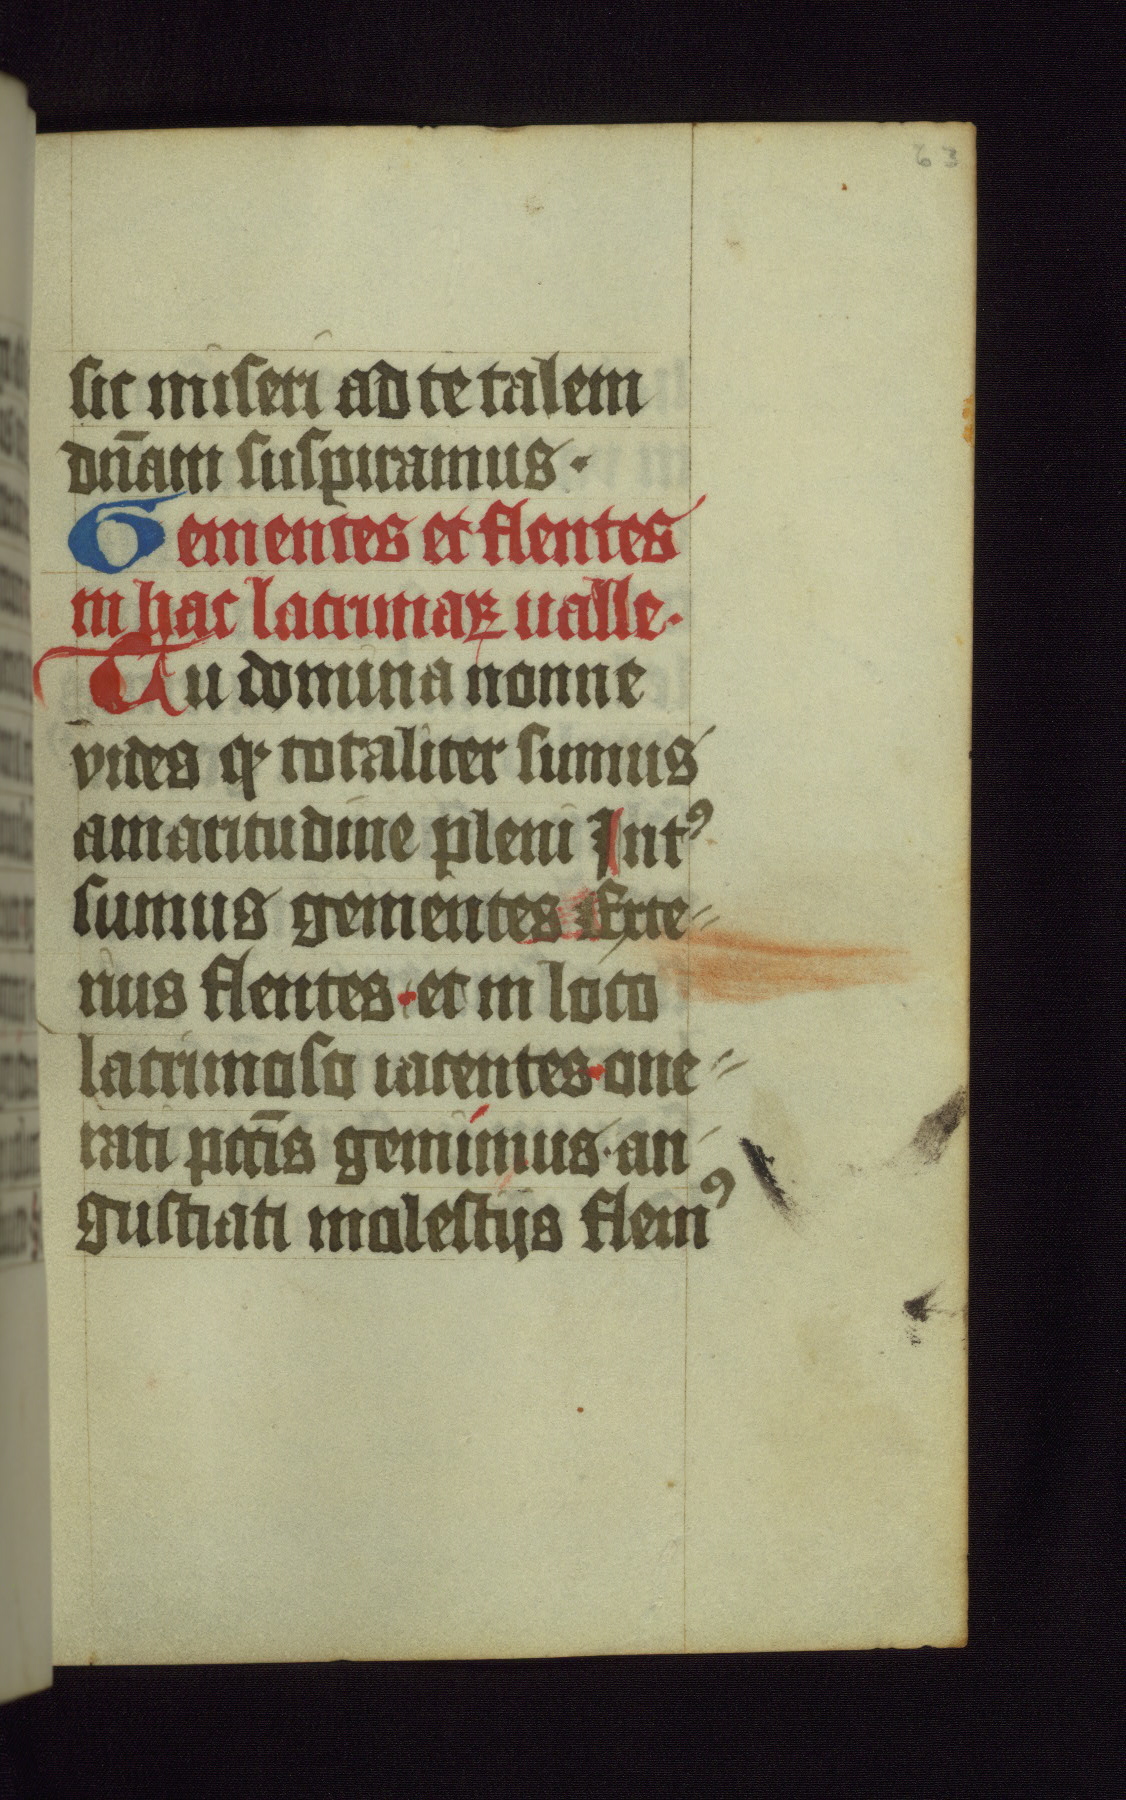 63
sic miseri ad te talem
dn̄am suspiramus·
Gementes et flentes
in hac lacrimaꝝ ualle·
Tu domina nonne
vides ꝙ totaliter sumus
amaritudine pleni Intꝰ
sumus gementes Exte⸗
rius flentes·et in loco
lacrimoso iacentes·one⸗
rati pctīs gemimus·an
gustiati molestijs flemꝰ